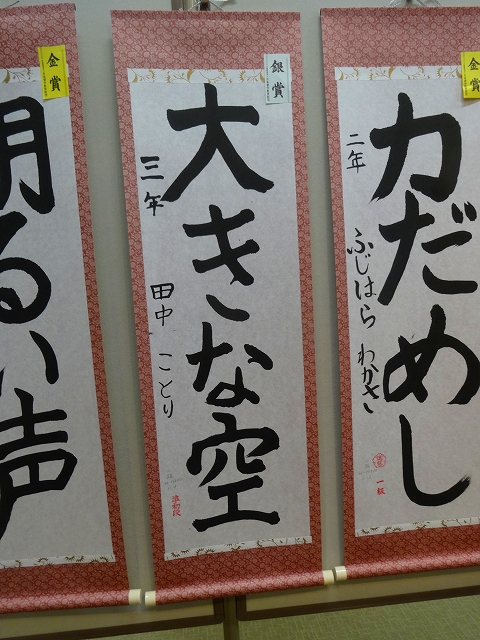 力だめし
二年
ふじはら わかさ
金賞
一級
大きな空
三年
田中 ことり
銀賞
準初段
明るい声
金賞